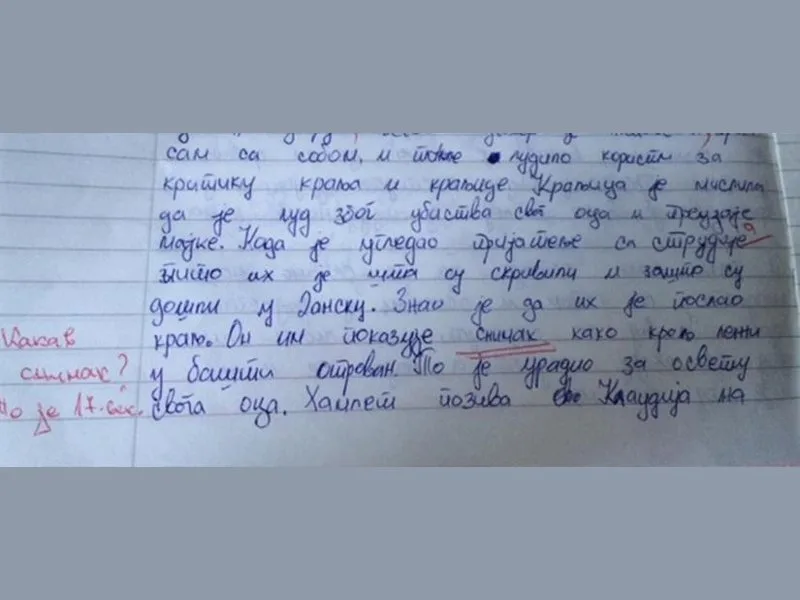 сам са собом, и то је лудило користи за
критику краља и краљице Краљица је мислила
да је луд због убиства свог оца и преудаје
мајке. Када је угледао пријатеље са студија
питао их је шта су скривили и зашто су
дошли у Данску. Знао је да их је послао
краљ. Он им показује снимак како краљ лежи
Какав
у башти отрован. То је урадио за освету
снимак?
свога оца. Хамлет позива Клаудија на
То је 17. век.